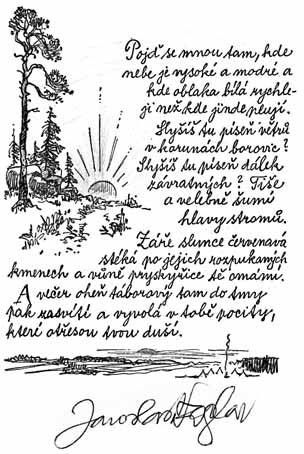 Pojď se mnou tam, kde
nebe je vysoké a modré a
kde oblaka bílá rychle-
ji než kde jinde plují.
Slyšíš tu píseň větrů
v korunách borovic?
Slyšíš tu píseň dálek
závratných? Tiše
a velebně šumí
hlavy stromů.
Záře slunce červenavá
stéká po jejich rozpukaných
kmenech a vůně pryskyřice tě omámí.
A večer oheň táborový tam do tmy
pak zasvítí a vyvolá v tobě pocity,
které otřesou tvou duší.
Jaroslav Foglar